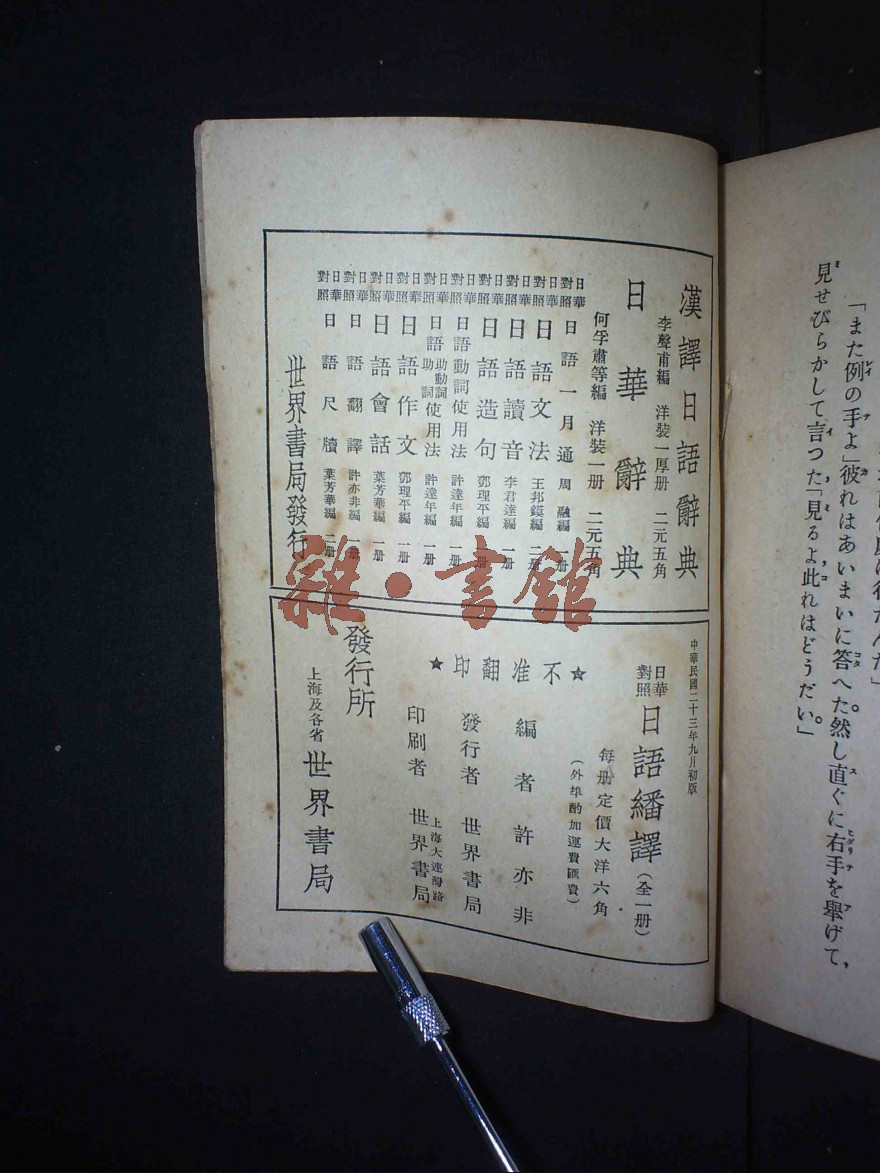 「また例の手よ」彼れはあいまいに答へた。然し直ぐに右手を舉げて、
見せびらかして言つた「見るよ此れはどうだい。」
漢譯日語辭典
李聲甫編 洋裝一厚册 二元五角
日華辭典
何孚肅等編 洋裝一册 二元五角
日華對照 日語一月通 周融編 一册
日華對照 日語文法 王邦鏌編 二册
日華對照 日語讀音 李君達編 一册
日華對照 日語造句 鄧理平編 一册
日華對照 日語動詞使用法 許達年編 一册
日華對照 日語助動詞助詞使用法 許達年編 一册
日華對照 日語作文 鄧理平編 一册
日華對照 日語會話 葉芳華編 一册
日華對照 日語翻譯 許亦非編 一册
日華對照 日語尺牘 葉芳華編 二册
世界書局發行
中華民國二十三年九月初版
日華對照 日語繙譯(全一册)
每册定價大洋六角
(外埠酌加運費匯費)
★不准翻印★
編者 許亦非
發行者 世界書局
上海大連灣路
印刷者 世界書局
發行所
上海及各省 世界書局
雜·書館